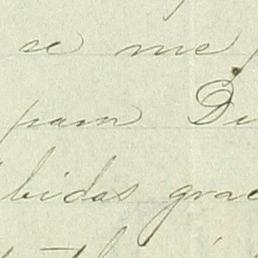 se me
para Di
bidas grac